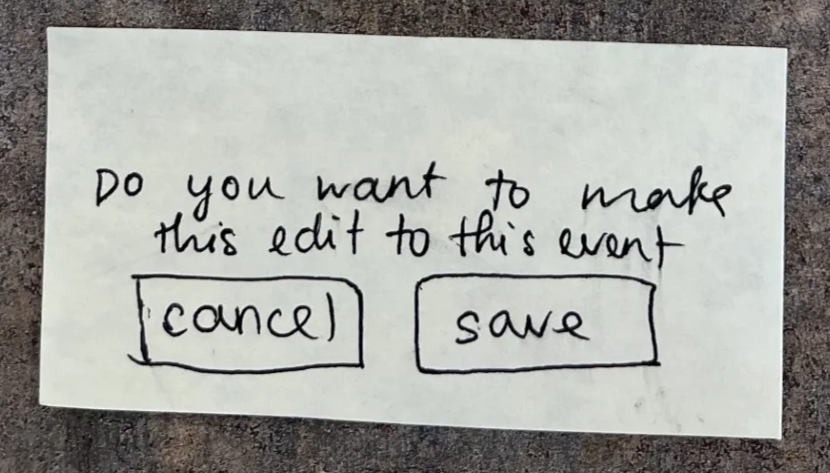 Do you want to make
this edit to this event
cancel save